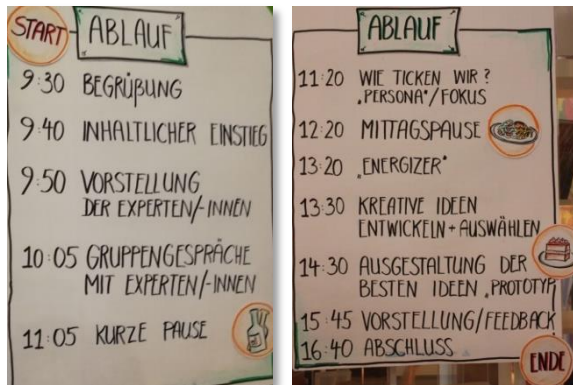 START
ABLAUF
9:30 BEGRÜßUNG
9:40 INHALTLICHER EINSTIEG
9:50 VORSTELLUNG
DER EXPERTEN/-INNEN
10:05 GRUPPENGESPRÄCHE
MIT EXPERTEN/-INNEN
11:05 KURZE PAUSE
ABLAUF
11:20 WIE TICKEN WIR?
„PERSONA"/FOKUS
12:20 MITTAGSPAUSE
13:20 „ENERGIZER"
13:30 KREATIVE IDEEN
ENTWICKELN + AUSWÄHLEN
14:30 AUSGESTALTUNG DER
BESTEN IDEEN „PROTOTYP
15:45 VORSTELLUNG/FEEDBACK
16:40 ABSCHLUSS
ENDE